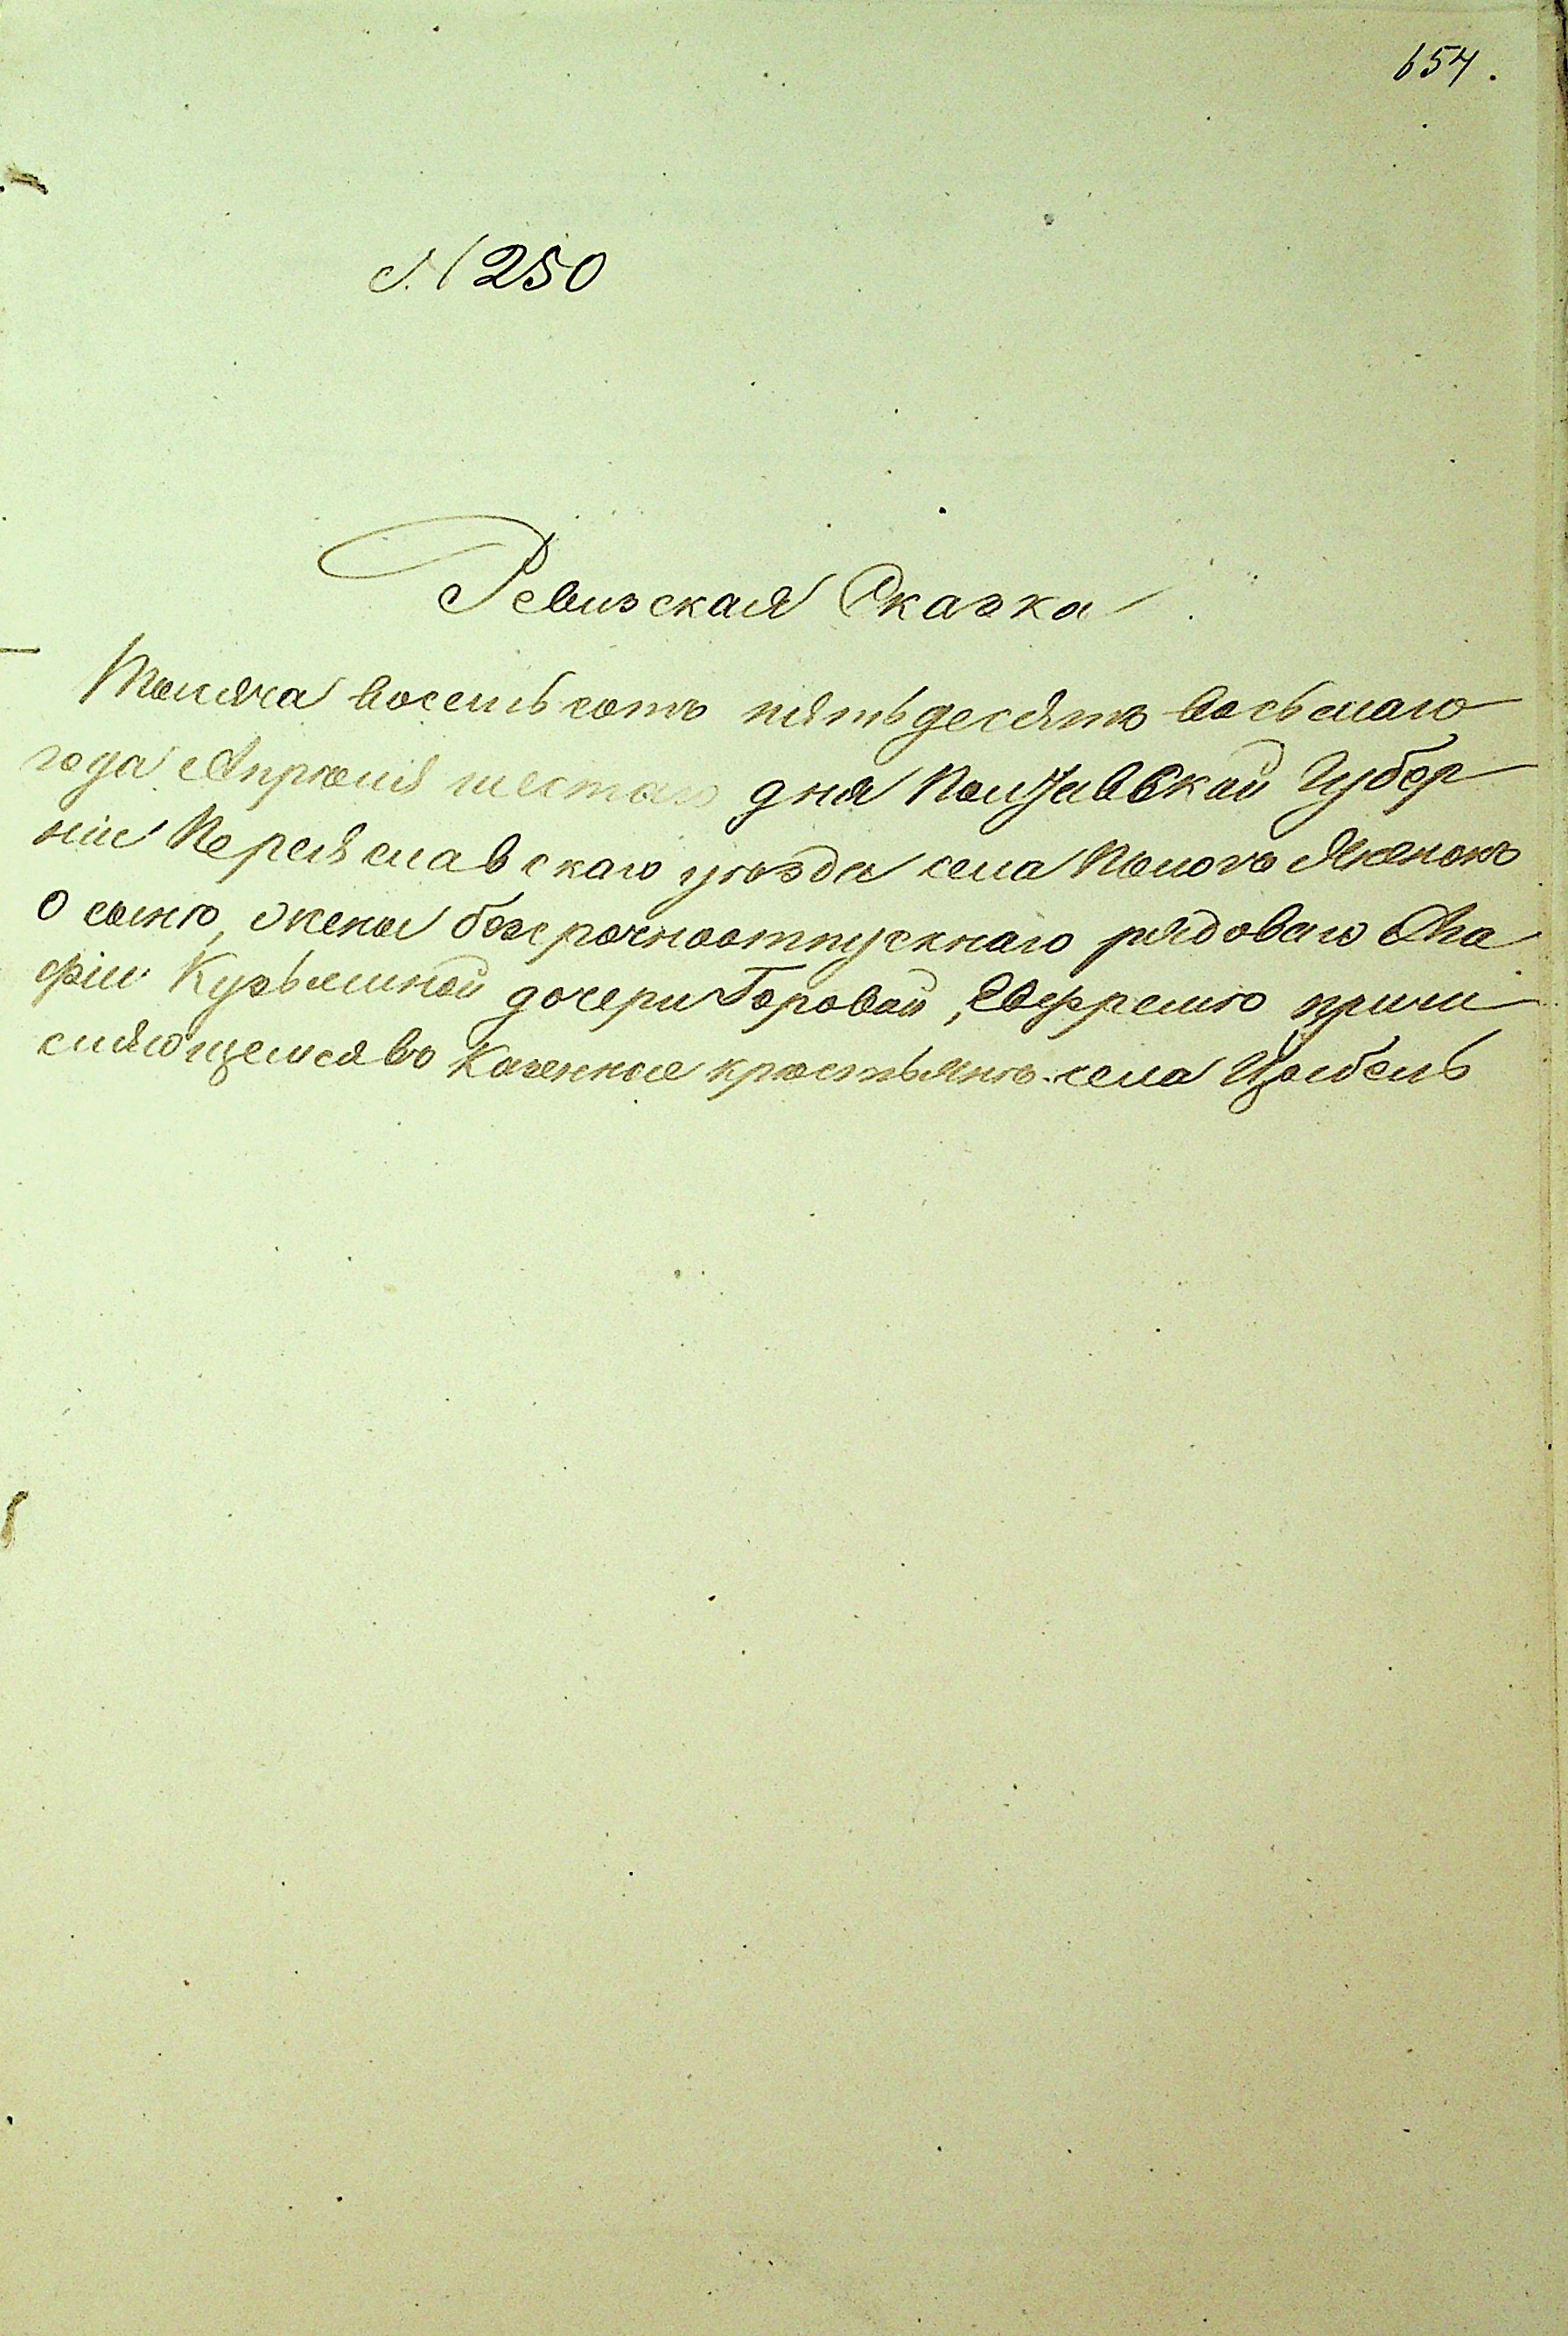 654.
№ 250
Ревизская Сказка
Тысяча восемьсотъ пятьдесятъ восьмаго
года Апрѣля шестаго дня Полтавской Губер
ніи Переяславскаго уѣзда села Пологъ Яненокъ
о сынѣ, жены безсрочноотпускнаго рядоваго Ага
фіи Кузьминой дочери Горовой, Евфремѣ причи
сляющемся въ Казенные крестьянѣ села Цыбель